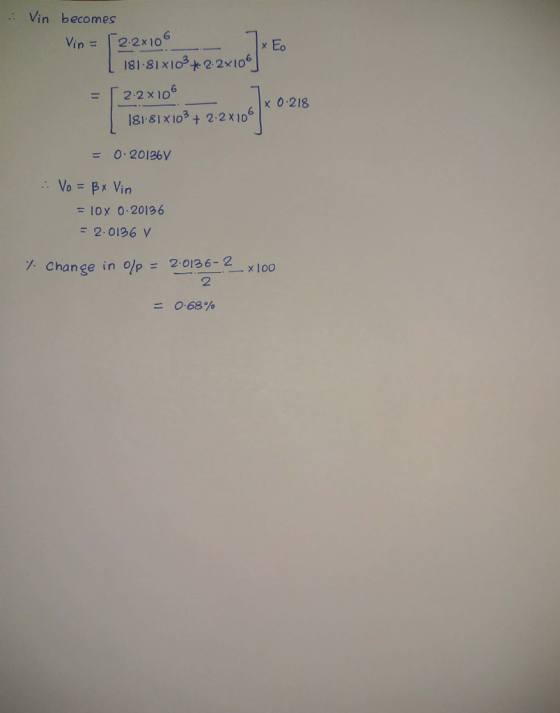 ∴ Vin becomes
Vin = [2.2×10⁶ / 181.81×10³ + 2.2×10⁶] × E₀
= [2.2×10⁶ / 181.81×10³ + 2.2×10⁶] × 0.218
= 0.20136V
∴ V₀ = β× Vin
= 10× 0.20136
= 2.0136 V
% Change in O/p = 2.0136-2 / 2 ×100
= 0.68%